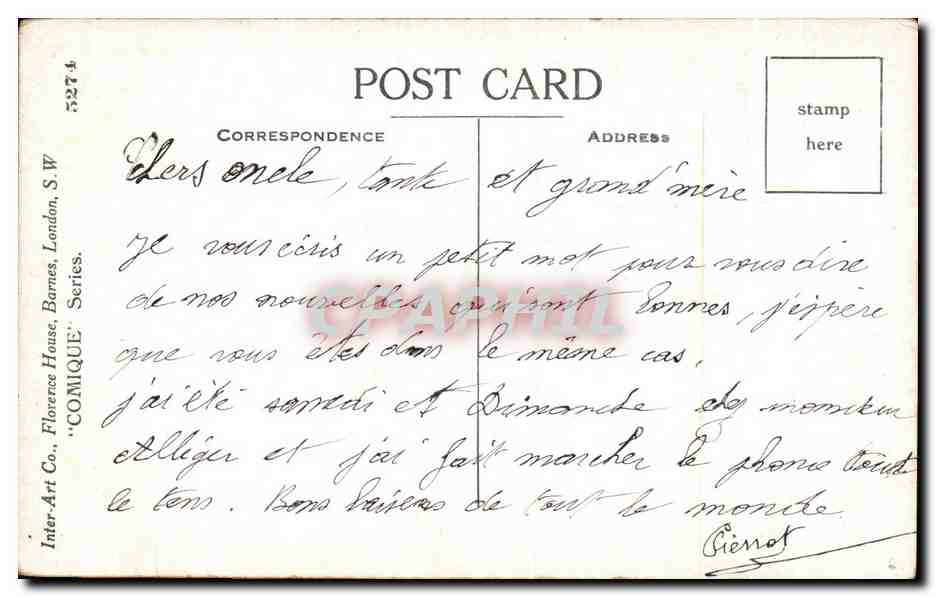 POST CARD
CORRESPONDENCE
ADDRESS
stamp
here
5274
Inter-Art Co., Florence House, Barnes, London, S.W
"COMIQUE" Series.
Chers oncle, tante et grand'mère
Je vous écris un petit mot pour vous dire
de nos nouvelles qui sont bonnes, j'éspère
que vous êtes dans le même cas.
j'ai été samedi et Dimanche chez monsieur
Alléger et j'ai fait marcher le phono tout
le tens. Bons baisers de tout le monde
Pierrot
CPAPHIL